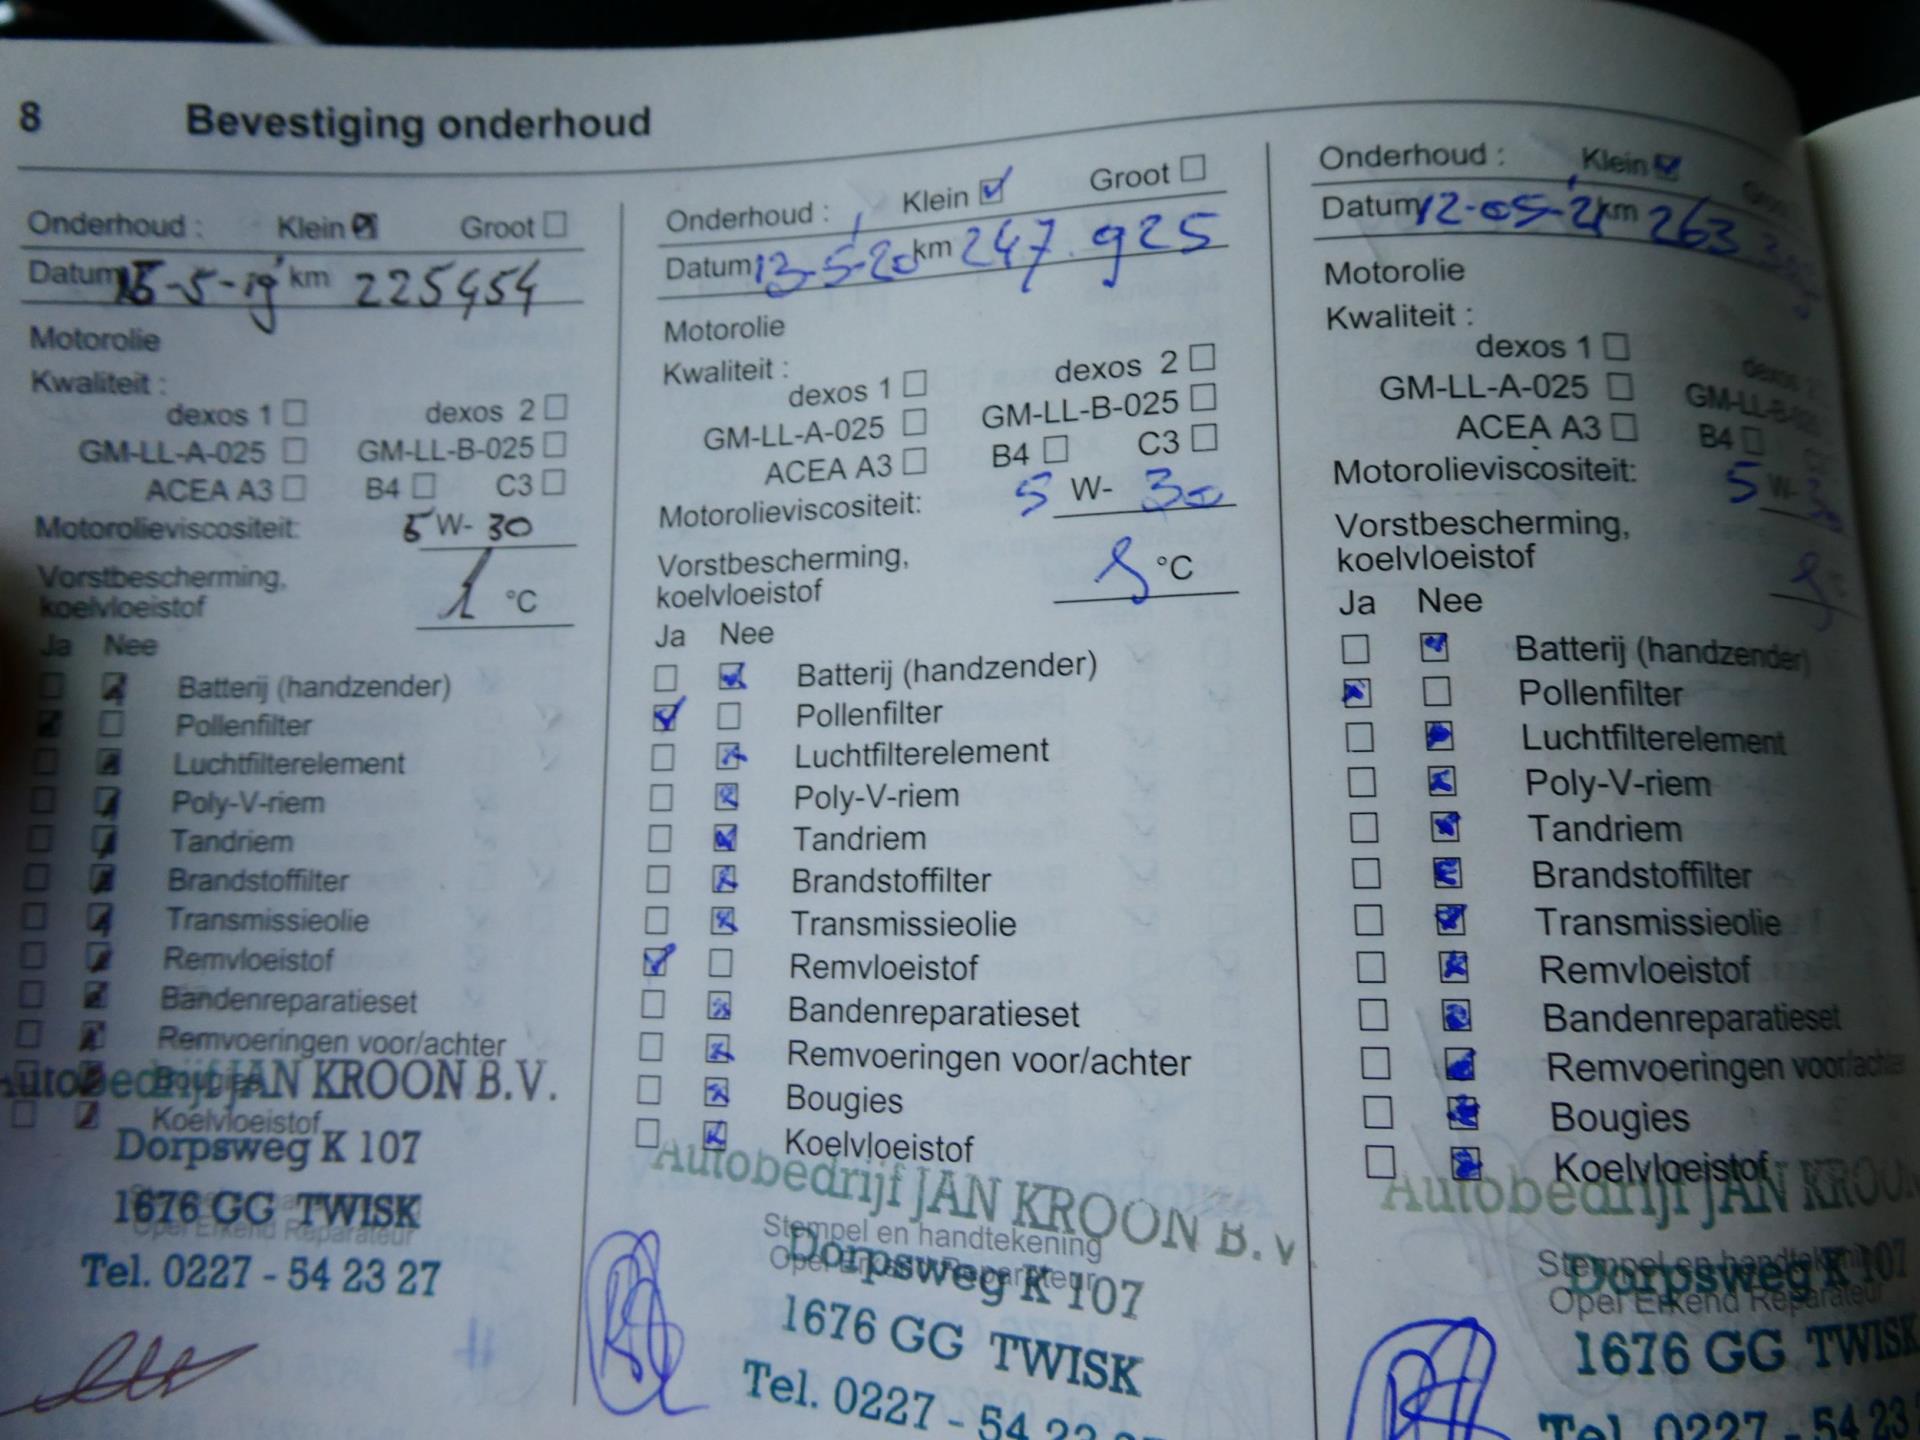 8 Bevestiging onderhoud
Onderhoud : Klein Groot
Datum 15-5-19 km 225454
Motorolie
Kwaliteit :
dexos 1 dexos 2
GM-LL-A-025 GM-LL-B-025
ACEA A3 B4 C3
Motorolieviscositeit: 5 W- 30
Vorstbescherming,
koelvloeistof °C
Ja Nee
Batterij (handzender)
Pollenfilter
Luchtfilterelement
Poly-V-riem
Tandriem
Brandstoffilter
Transmissieolie
Remvloeistof
Bandenreparatieset
Remvoeringen voor/achter
Bougies
Autobedrijf JAN KROON B.V.
Koelvloeistof
Dorpsweg K 107
1676 GG TWISK
Opel Erkend Reparateur
Tel. 0227 - 54 23 27
Onderhoud : Klein Groot
Datum 13-5-20 km 247.925
Motorolie
Kwaliteit :
dexos 1 dexos 2
GM-LL-A-025 GM-LL-B-025
ACEA A3 B4 C3
Motorolieviscositeit: 5 W- 30
Vorstbescherming,
koelvloeistof °C
Ja Nee
Batterij (handzender)
Pollenfilter
Luchtfilterelement
Poly-V-riem
Tandriem
Brandstoffilter
Transmissieolie
Remvloeistof
Bandenreparatieset
Remvoeringen voor/achter
Bougies
Koelvloeistof
Autobedrijf JAN KROON B.V
Stempel en handtekening
Opel Erkend Reparateur
Dorpsweg K 107
1676 GG TWISK
Tel. 0227 - 54 23
Onderhoud : Klein Groot
Datum 12-05-21 km 263
Motorolie
Kwaliteit :
dexos 1 dexos 2
GM-LL-A-025 GM-LL-B-025
ACEA A3 B4
Motorolieviscositeit: 5 W- 30
Vorstbescherming,
koelvloeistof
Ja Nee
Batterij (handzender)
Pollenfilter
Luchtfilterelement
Poly-V-riem
Tandriem
Brandstoffilter
Transmissieolie
Remvloeistof
Bandenreparatieset
Remvoeringen voor/achter
Bougies
Koelvloeistof
Autobedrijf JAN KROON
Stempel en handtekening
Dorpsweg K 107
Opel Erkend Reparateur
1676 GG TWISK
Tel. 0227 - 54 23